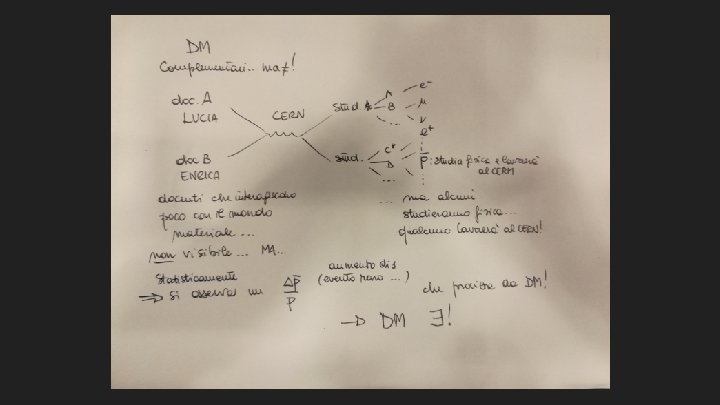 DM
Complementari.. ma ≠!
doc. A
LUCIA
CERN
doc B
ENRICA
Stud. A
A
B
...
e⁻
μ
ν
e⁺
stud.
C*
D
...
p̄ : studia fisica e lavorerà
al CERN
docenti che interagiscono
poco con il mondo
materiale ...
non visibile ... MA...
... ma alcuni
studieranno fisica...
qualcuno lavorerà al CERN!
Statisticamente
⇒ si osserva un Δp̄ / p
aumento di
(evento raro ...)
che proviene da DM!
→ DM ∃!